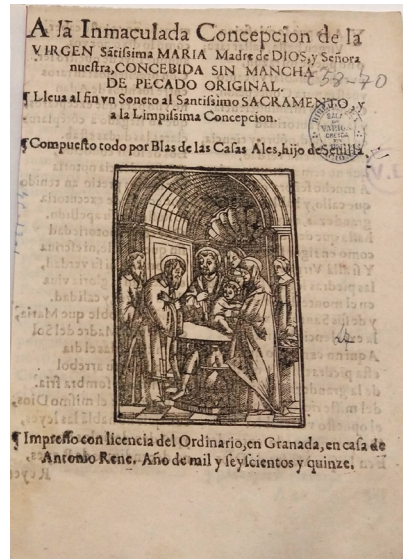 A la Inmaculada Concepcion de la
VIRGEN Sãtissima MARIA Madre de DIOS, y Señora
nuestra, CONCEBIDA SIN MANCHA
DE PECADO ORIGINAL.
¶ Lleva al fin vn Soneto al Santissimo SACRAMENTO, y
a la Limpissima Concepcion.
¶ Compuesto todo por Blas de las Casas Ales, hijo de Sevilla
¶ Impresso con licencia del Ordinario, en Granada, en casa de
Antonio Rene. Año de mil y seyscientos y quinze.